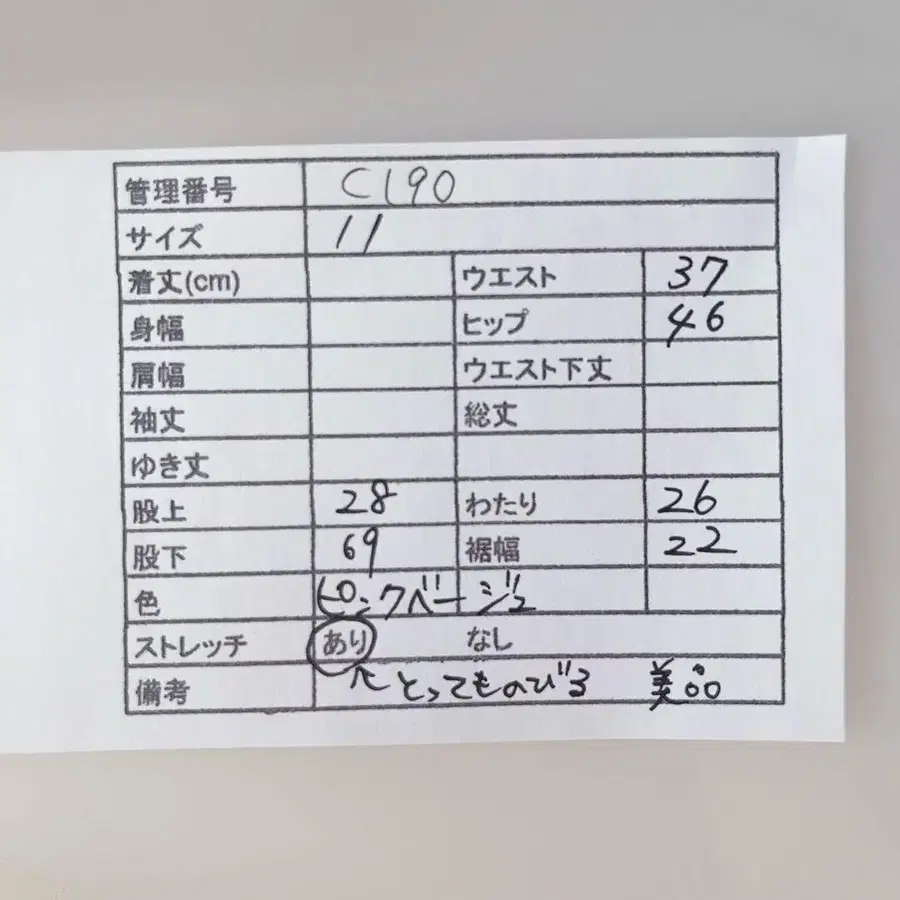 管理番号 C190
サイズ 11
着丈(cm) ウエスト 37
身幅 ヒップ 46
肩幅 ウエスト下丈
袖丈 総丈
ゆき丈
股上 28 わたり 26
股下 69 裾幅 22
色 ピンクベージュ
ストレッチ あり なし
備考 ↖とってものびる 美品